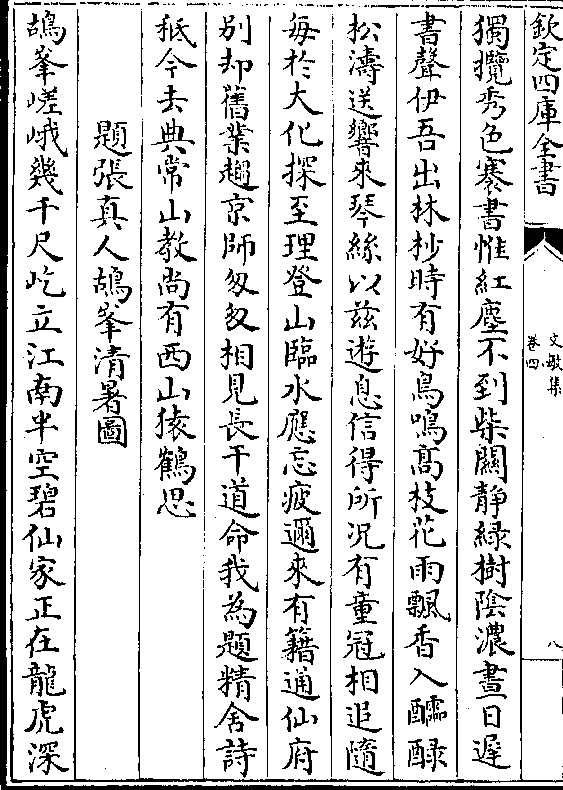 欽定四庫全書
文敏集
卷四
八
獨攬秀色褰書帷紅塵不到柴關靜綠樹陰濃晝日遲
書聲伊吾出林杪時有好鳥鳴髙枝花雨飄香入醹醁
松濤送響來琴絲以兹遊息信得所况有童冠相追隨
每於大化探至理登山臨水應忘疲邇來有籍通仙府
别却舊業趨京師匆匆相見長干道命我為題精舍詩
秪今去典常山教尚有西山猿鶴思
題張真人鵠峯清暑圖
鵠峯嵯峨幾千尺屹立江南半空碧仙家正在龍虎深